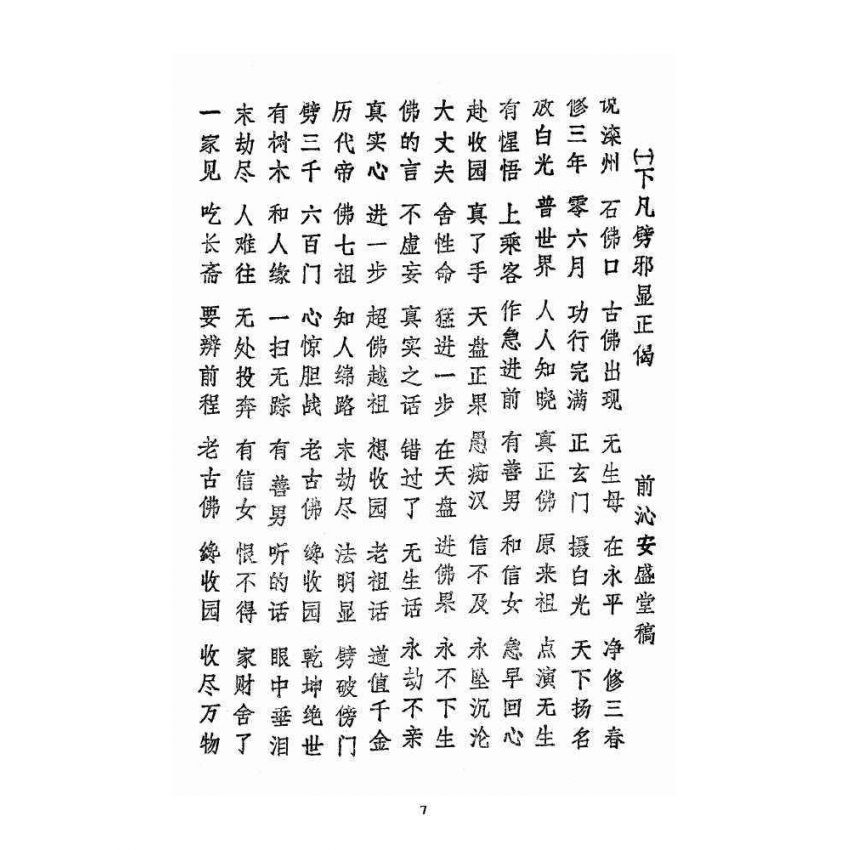 ㈠下凡劈邪显正偈 前沁安盛堂稿
说滦州 石佛口 古佛出现 无生母 在永平 净修三春
修三年 零六月 功行完满 正玄门 摄白光 天下扬名
放白光 普世界 人人知晓 真正佛 原来祖 点演无生
有惺悟 上乘客 作急进前 有善男 和信女 急早回心
赴收园 真了手 天盘正果 愚痴汉 信不及 永坠沉沦
大丈夫 舍性命 猛进一步 在天盘 进佛果 永不下生
佛的言 不虚妄 真实之话 错过了 无生话 永劫不亲
真实心 进一步 超佛越祖 想收园 老祖话 道值千金
历代帝 佛七祖 知人绵路 末劫尽 法明显 劈破傍门
劈三千 六百门 心惊胆战 老古佛 纔收园 乾坤绝世
有树木 和人缘 一扫无踪 有善男 听的话 眼中垂泪
末劫尽 人难往 无处投奔 有信女 恨不得 家财舍了
一家见 吃长斋 要辨前程 老古佛 纔收园 收尽万物
7